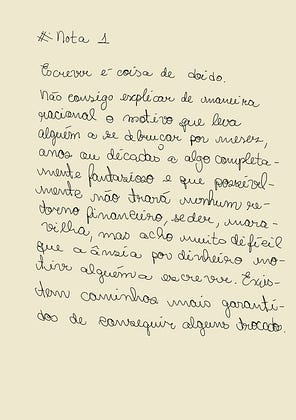 # Nota 1
Escrever é coisa de doido.
Não consigo explicar de maneira
racional o motivo que leva
alguém a se debruçar por meses,
anos ou décadas a algo completa-
mente fantasioso e que possivel-
mente não trará nenhum re-
torno financeiro, se der, mara-
vilha, mas acho muito difícil
que a ânsia por dinheiro mo-
tive alguém a escrever. Exis-
tem caminhos mais garanti-
dos de conseguir alguns trocados.